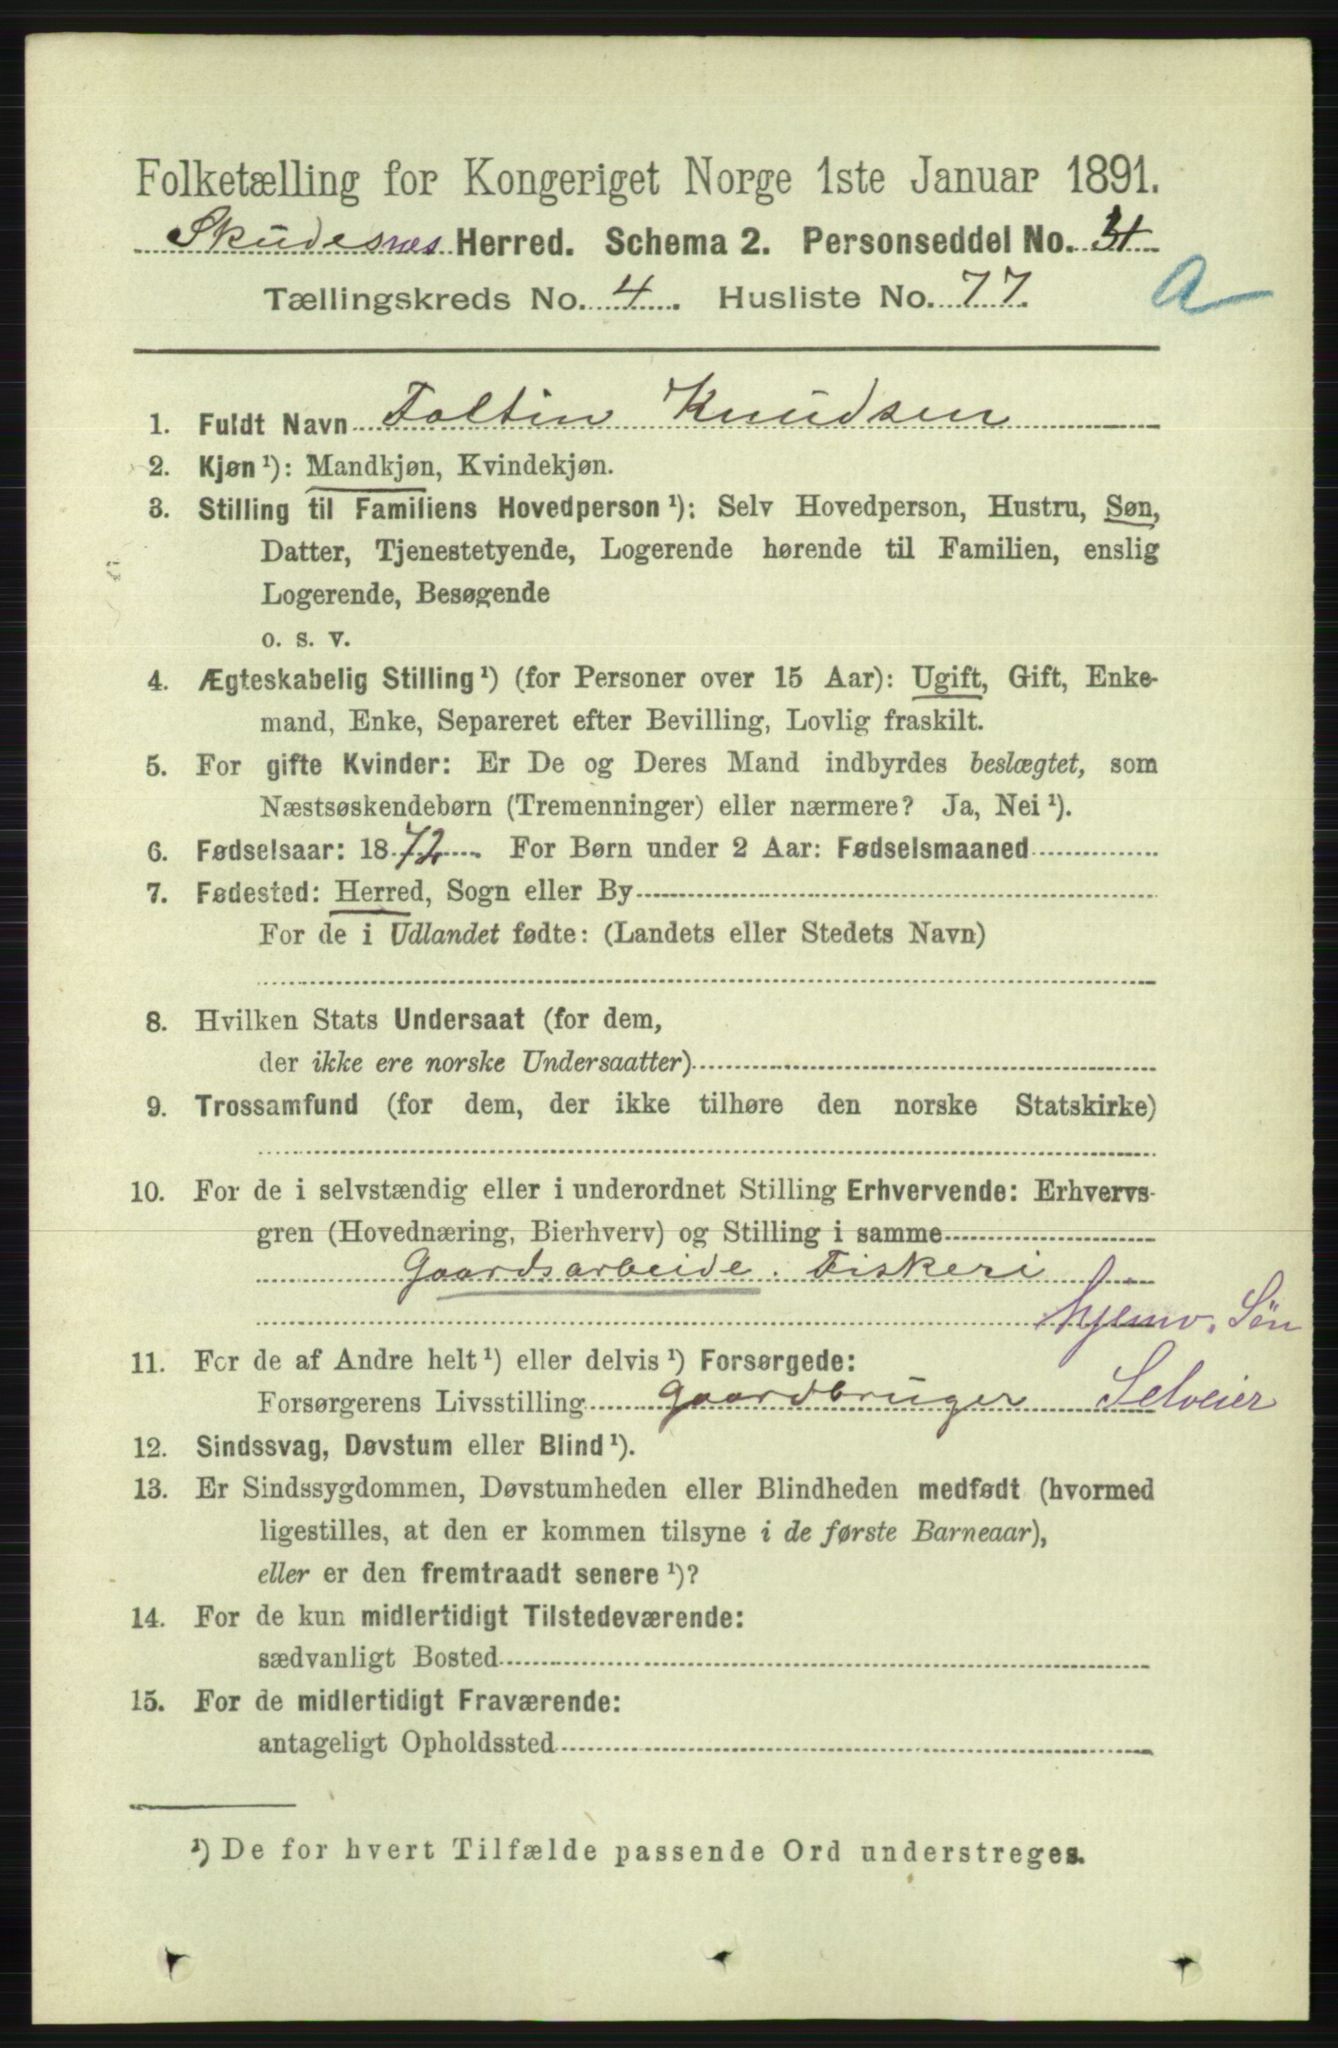 Folketælling for Kongeriget Norge 1ste Januar 1891.
Skudesnes Herred. Schema 2. Personseddel No.
Tællingskreds No. 4. Husliste No. 77.
a
1. Fuldt Navn Foltin Knudsen
2. Kjøn ¹): Mandkjøn, Kvindekjøn.
3. Stilling til Familiens Hovedperson ¹): Selv Hovedperson, Hustru, Søn,
Datter, Tjenestetyende, Logerende hørende til Familien, enslig
Logerende, Besøgende
o. s. v.
4. Ægteskabelig Stilling ¹) (for Personer over 15 Aar): Ugift, Gift, Enke-
mand, Enke, Separeret efter Bevilling, Lovlig fraskilt.
5. For gifte Kvinder: Er De og Deres Mand indbyrdes beslægtet, som
Næstsøskendebørn (Tremenninger) eller nærmere? Ja, Nei ¹).
6. Fødselsaar: 1872. For Børn under 2 Aar: Fødselsmaaned
7. Fødested: Herred, Sogn eller By
For de i Udlandet fødte: (Landets eller Stedets Navn)
8. Hvilken Stats Undersaat (for dem,
der ikke ere norske Undersaatter)
9. Trossamfund (for dem, der ikke tilhøre den norske Statskirke)
10. For de i selvstændig eller i underordnet Stilling Erhvervende: Erhvervs-
gren (Hovednæring, Bierhverv) og Stilling i samme
Gaardsarbeide. Fiskeri
hjemv. Søn
11. For de af Andre helt ¹) eller delvis ¹) Forsørgede:
Forsørgerens Livsstilling Gaardbruger Selveier
12. Sindssvag, Døvstum eller Blind ¹).
13. Er Sindssygdommen, Døvstumheden eller Blindheden medfødt (hvormed
ligestilles, at den er kommen tilsyne i de første Barneaar),
eller er den fremtraadt senere ¹)?
14. For de kun midlertidigt Tilstedeværende:
sædvanligt Bosted
15. For de midlertidigt Fraværende:
antageligt Opholdssted
¹) De for hvert Tilfælde passende Ord understreges.